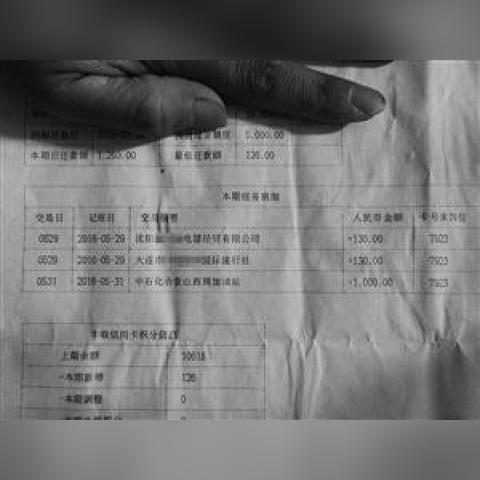 5,000.00
本期应还款额 1,260.00 最低还款额 126.00
本期账务明细
交易日 记账日 交易摘要 人民币金额 卡号末四位
0529 2016-05-29 沈阳 电器经贸有限公司 +130.00 7923
0529 2016-05-29 大连市 国际旅行社 +130.00 7923
0531 2016-05-31 中石化 加油站 +1,000.00 7923
本期信用卡积分信息
上期余额
本期新增 126
本期调整 0